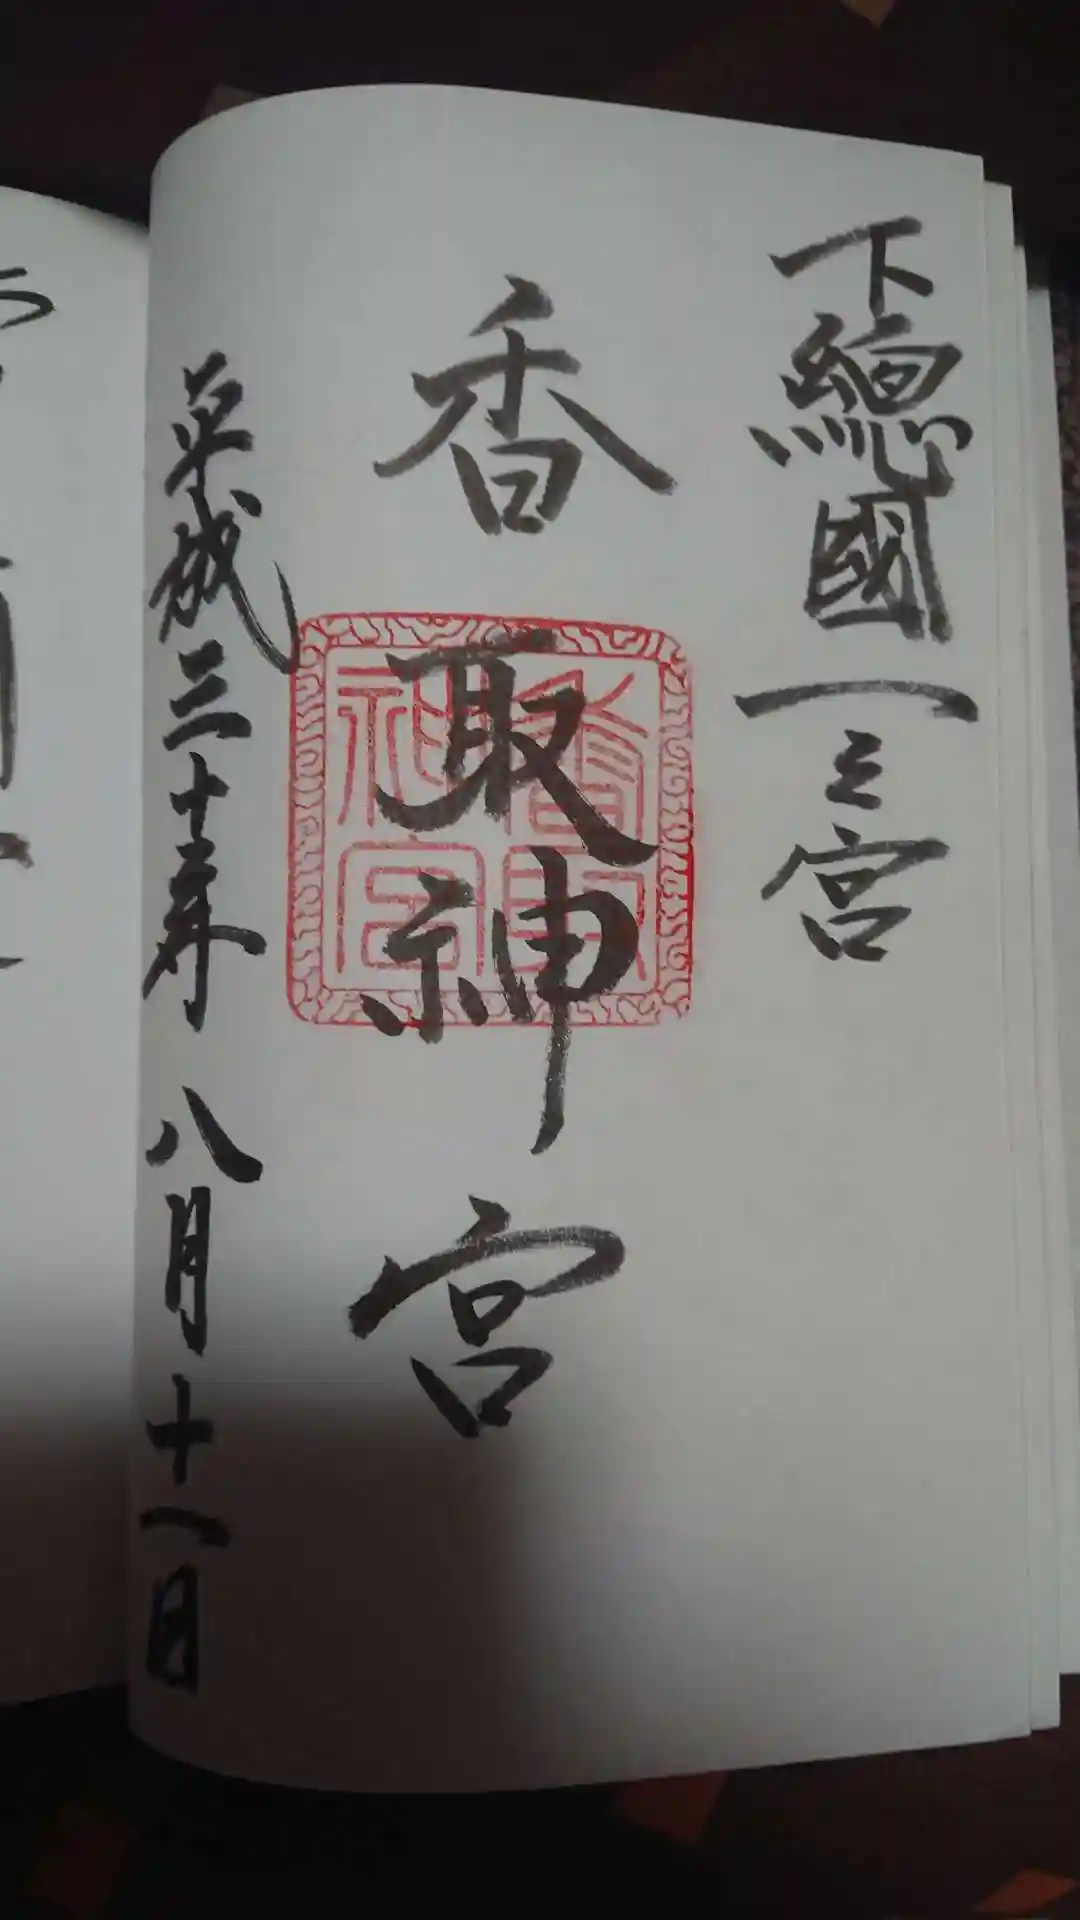 下總國一之宮
香取神宮
香取
神宮
平成三十年 八月十一日